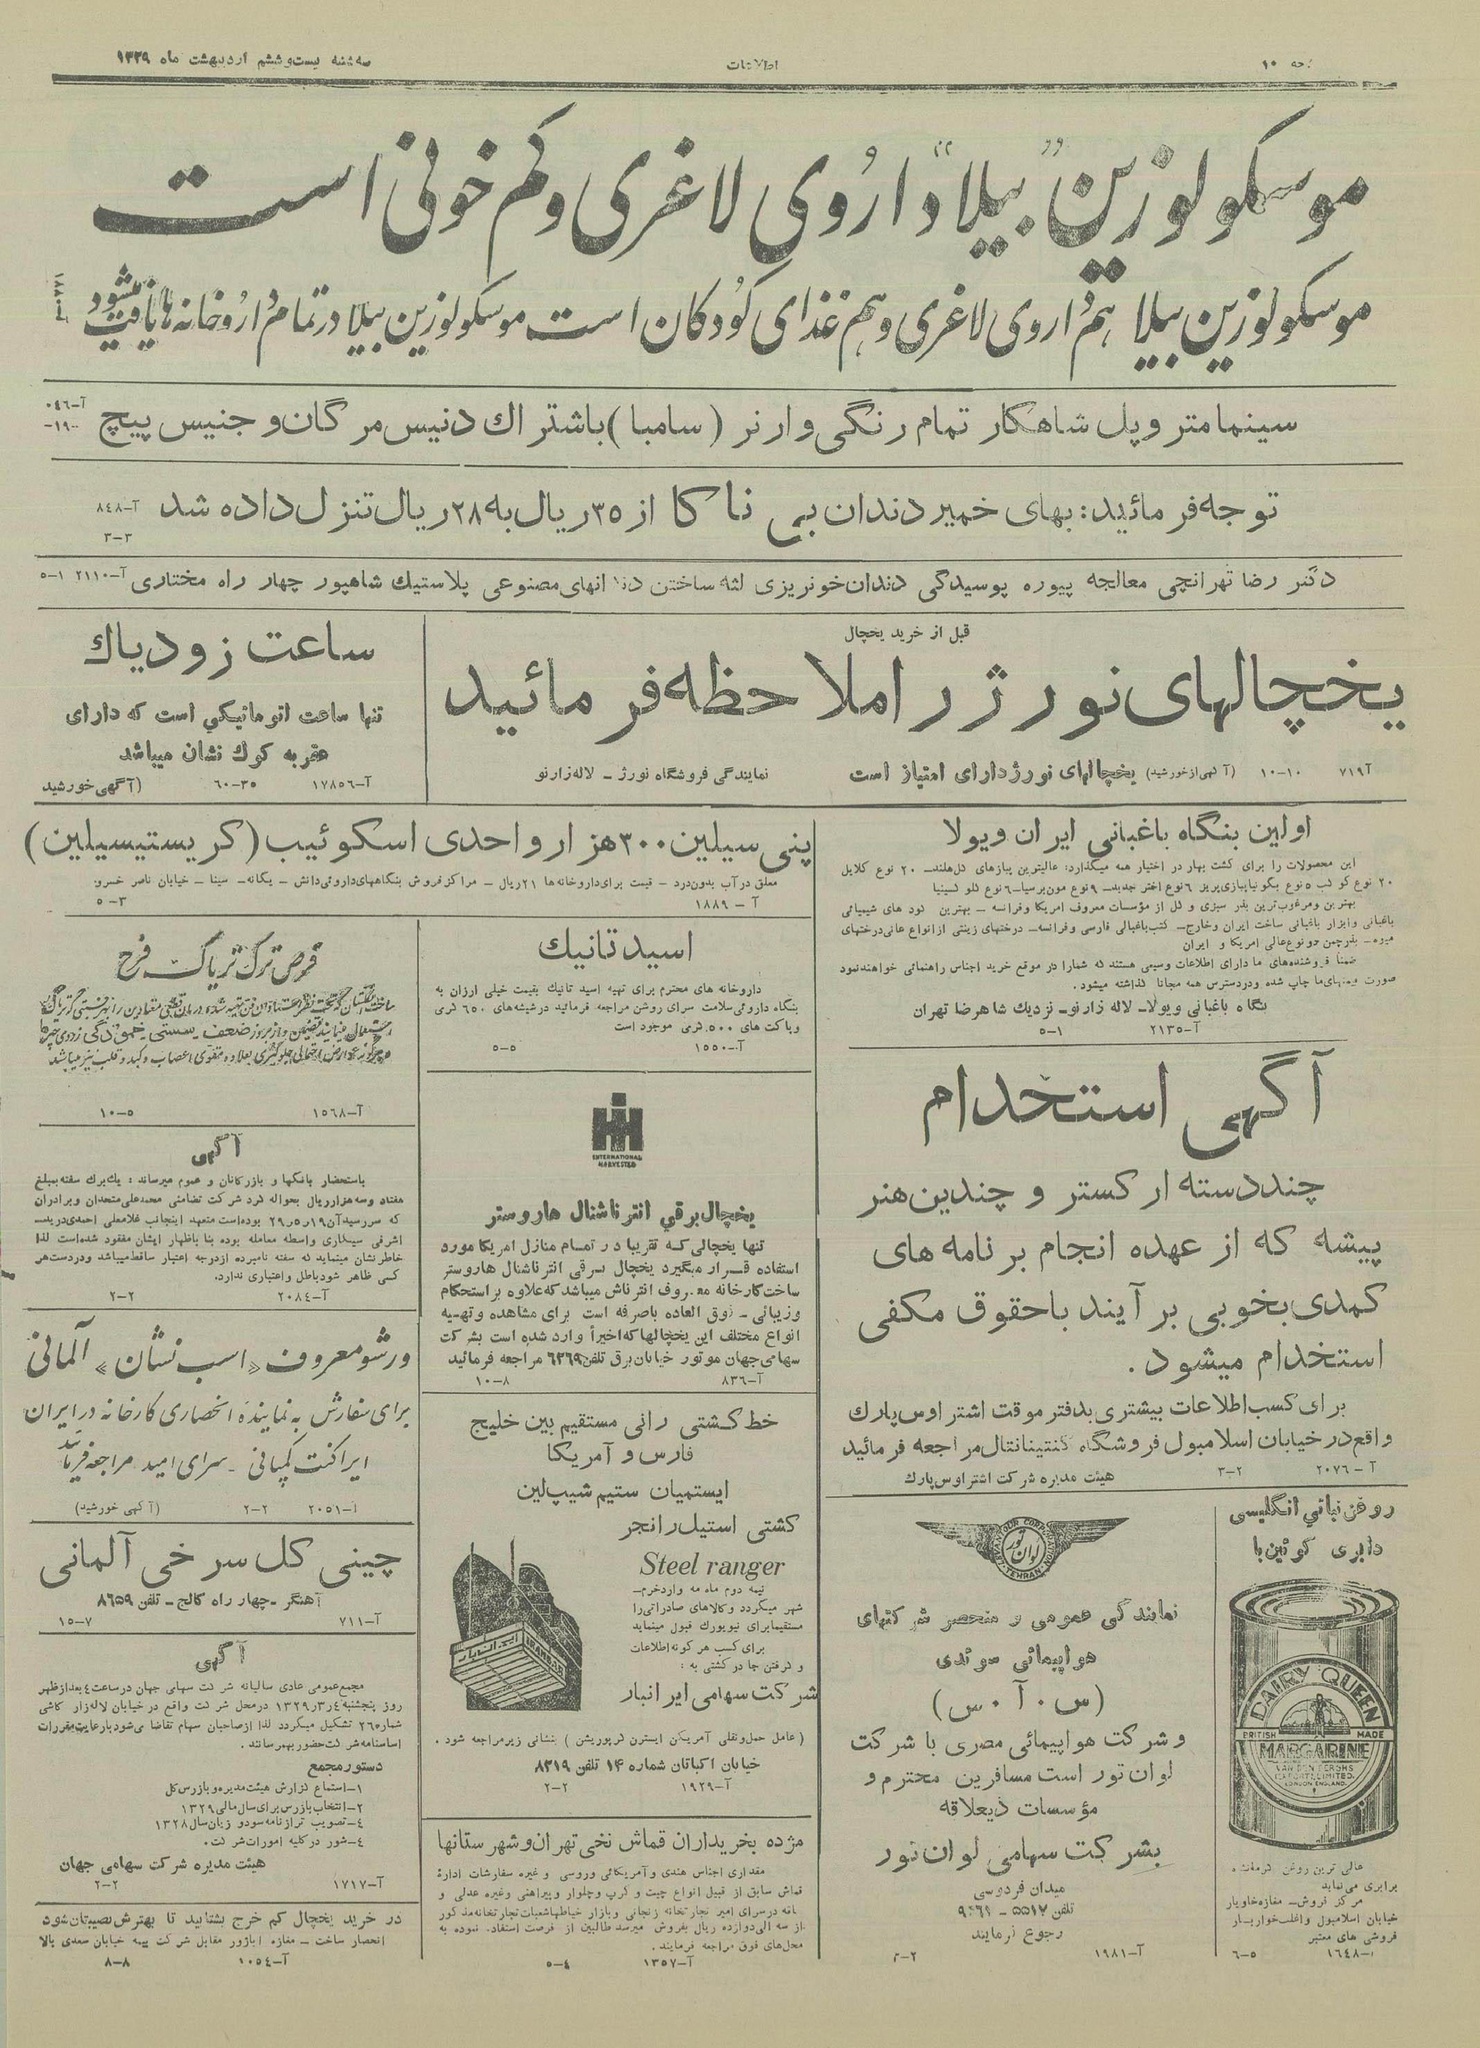 صفحه ۱۰
اطلاعات
سه‌شنبه بیست‌وششم اردیبهشت ماه ۱۳۲۹
موسکولوزین "بیلا" داروی لاغری و کم خونی است
موسکولوزین بیلا هم داروی لاغری و هم غذای کودکان است موسکولوزین بیلا در تمام داروخانه ها یافت میشود
سینما متروپل شاهکار تمام رنگی وارنر (سامبا) باشتراك دنیس مرگان و جنیس پیچ
توجه فرمائید: بهای خمیر دندان بی ناکا از ۳۵ ریال به ۲۸ ریال تنزل داده شد
آ-۸٤۸
۳-۳
دکتر رضا تهرانچی معالجه پیوره پوسیدگی دندان خونریزی لثه ساختن دندانهای مصنوعی پلاستیك شاهپور چهار راه مختاری
آ-۲۱۱۰ ۱-۵
قبل از خرید یخچال
یخچالهای نورژ را ملاحظه فرمائید
یخچالهای نورژ دارای امتیاز است
نمایندگی فروشگاه نورژ - لاله زار نو
آ ۷۱۹ ۱۰-۱۰ (آگهی از خورشید)
ساعت زودیاك
تنها ساعت اتوماتیکی است که دارای
عقربه کوك نشان میباشد
آ-۱۷۸۵٦ ۳۵-٦۰ (آگهی خورشید
اولین بنگاه باغبانی ایران ویولا
این محصولات را برای کشت بهار در اختیار همه میگذارد: عالیترین پیازهای گل هلند- ۲۰ نوع گلایل
بهترین و مرغوب‌ترین بذر سبزی و گل از مؤسسات معروف امریکا و فرانسه - بهترین کود های شیمیائی
باغبانی و ابزار باغبانی ساخت ایران و خارج- کتب باغبانی فارسی و فرانسه- درختهای زینتی از انواع عالی درختهای
میوه- بذر چمن دو نوع عالی امریکا و ایران
ضمنا فروشنده‌های ما دارای اطلاعات وسیعی هستند که شما را در موقع خرید اجناس راهنمائی خواهند نمود
صورت قیمتهای ما چاپ شده و در دسترس همه مجانا گذاشته میشود.
بنگاه باغبانی ویولا- لاله زار نو- نزدیك شاهرضا تهران
آ-۲۱۳۵ ۱-۵
پنی سیلین ۳۰۰ هزار واحدی اسکوئیب (کریستیسیلین)
معلق در آب بدون درد - قیمت برای داروخانه ها ۲۱ ریال - مراکز فروش بنگاههای داروئی دانش - یگانه- سینا - خیابان ناصر خسرو
آ - ۱۸۸۹ ۳-۵
اسید تانیك
داروخانه های محترم برای تهیه اسید تانیك بقیمت خیلی ارزان به
بنگاه داروئی سلامت سرای روشن مراجعه فرمائید در شیشه‌های ٦۵۰ گرمی
و پاکت های ۵۰۰ گرمی موجود است
آ-۱۵۵۰ ۵-۵
قرص ترک تریاک فرح
آ-۱۵٦۸ ۵-۱۰
آگهی
باستحضار بانکها و بازرگانان و عموم میرساند: یك برك سفته بمبلغ
هفتاد و سه هزار ریال بحواله کرد شرکت تضامنی محمدعلی متحدان و برادران
که سررسید آن ۱۹ر۵ر۲۹ بوده است متعهد اینجانب غلامعلی احمدی در ید
اشرفی سیگاری واسطه معامله بوده بنا باظهار ایشان مفقود شده است لذا
خاطر نشان مینماید که سفته نامبرده از درجه اعتبار ساقط میباشد و در دست هر
کسی ظاهر شود باطل و اعتباری ندارد.
آ-۲۰۸٤ ۲-۲
ورشو معروف «اسب نشان» آلمانی
برای سفارش به نماینده انحصاری کارخانه در ایران
ایراکنت کمپانی - سرای امید مراجعه فرمائید
آ-۲۰۵۱ ۲-۲ (آگهی خورشید)
چینی گل سرخی آلمانی
آهنگر - چهار راه کالج - تلفن ۸٦۵۹
آ-۷۱۱ ۷-۱۵
آگهی
مجمع عمومی عادی سالیانه شرکت سهامی جهان در ساعت ٤ بعد از ظهر
روز پنجشنبه ٤ر۳ر۱۳۲۹ در محل شرکت واقع در خیابان لاله زار کاشی
شماره ۲٦ تشکیل میگردد لذا از صاحبان سهام تقاضا می‌شود با رعایت مقررات
اساسنامه شرکت حضور بهمرسانند.
دستور مجمع
۱-استماع گزارش هیئت مدیره و بازرس کل
۲-انتخاب بازرس برای سال مالی ۱۳۲۹
٤-تصویب ترازنامه سود و زیان سال ۱۳۲۸
٤-شور در کلیه امورات شرکت.
هیئت مدیره شرکت سهامی جهان
آ-۱۷۱۷ ۲-۲
در خرید یخچال کم خرج بشتابید تا بهترش نصیبتان شود
انحصار ساخت - مغازه اباژور مقابل شرکت بیمه خیابان سعدی بالا
آ-۱۰۵٤ ۸-۸
INTERNATIONAL
HARVESTER
یخچال برقی انترناشنال هاروستر
تنها یخچالی که تقریبا در تمام منازل امریکا مورد
استفاده قرار میگیرد یخچال برقی انترناشنال هاروستر
ساخت کارخانه معروف انترناش میباشد که علاوه بر استحکام
و زیبائی - فوق العاده باصرفه است برای مشاهده و تهیه
انواع مختلف این یخچالها که اخیراً وارد شده است بشرکت
سهامی جهان موتور خیابان برق تلفن ٦۳٦۹ مراجعه فرمائید
آ-۸۳٦ ۸-۱۰
خط کشتی رانی مستقیم بین خلیج
فارس و آمریکا
ایستمیان ستیم شیپ لین
کشتی استیل رانجر
Steel ranger
نیمه دوم ماه مه وارد خرم-
شهر میگردد و کالاهای صادراتی را
مستقیما برای نیویورك قبول مینماید
برای کسب هر گونه اطلاعات
و گرفتن جا در کشتی به:
شرکت سهامی ایرانبار
ایران بار
IRANBAR
(عامل حمل و نقلی آمریکن ایسترن کرپوریشن) بنشانی زیر مراجعه شود.
خیابان اکباتان شماره ۱۴ تلفن ۸۳۱۹
آ-۱۹۲۹ ۲-۲
مژده بخریداران قماش نخی تهران و شهرستانها
مقداری اجناس هندی و آمریکائی و روسی و غیره سفارشات اداره
قماش سابق از قبیل انواع چیت و کرپ و چلوار و پیراهنی و غیره عدلی و
از سه الی دوازده ریال بفروش میرسد طالبین از فرصت استفاده نموده به
محل‌های فوق مراجعه فرمایند.
آ-۱۳۵۷ ٤-۵
آگهی استخدام
چند دسته ارکستر و چندین هنر
پیشه که از عهده انجام برنامه های
کمدی بخوبی بر آیند با حقوق مکفی
استخدام میشود.
برای کسب اطلاعات بیشتری بدفتر موقت اشتراوس پارك
واقع در خیابان اسلامبول فروشگاه کنتینانتال مراجعه فرمائید
آ - ۲۰۷٦ ۲-۳ هیئت مدیره شرکت اشتراوس پارك
LEVANTOUR CORPORATION
لوان تور
TEHRAN
نمایندگی عمومی و منحصر شرکتهای
هواپیمائی سوئدی
(س۰آ۰س)
و شرکت هواپیمائی مصری با شرکت
لوان تور است مسافرین محترم و
مؤسسات ذیعلاقه
بشرکت سهامی لوان تور
میدان فردوسی
تلفن ۵۵۱۷ -
رجوع فرمایند
آ-۱۹۸۱
روغن نباتی انگلیسی
دایری کوئین با
DAIRY QUEEN
BRITISH MADE
MARGARINE
VAN DEN BERGHS
(EXPORT) LIMITED.
LONDON ENGLAND.
عالی ترین روغن کرمانشاه
برابری می‌نماید
مرکز فروش- مغازه خاویار
خیابان اسلامبول و اغلب خواربار
فروشی های معتبر
آ-۱٦٤۸ ۵-٦